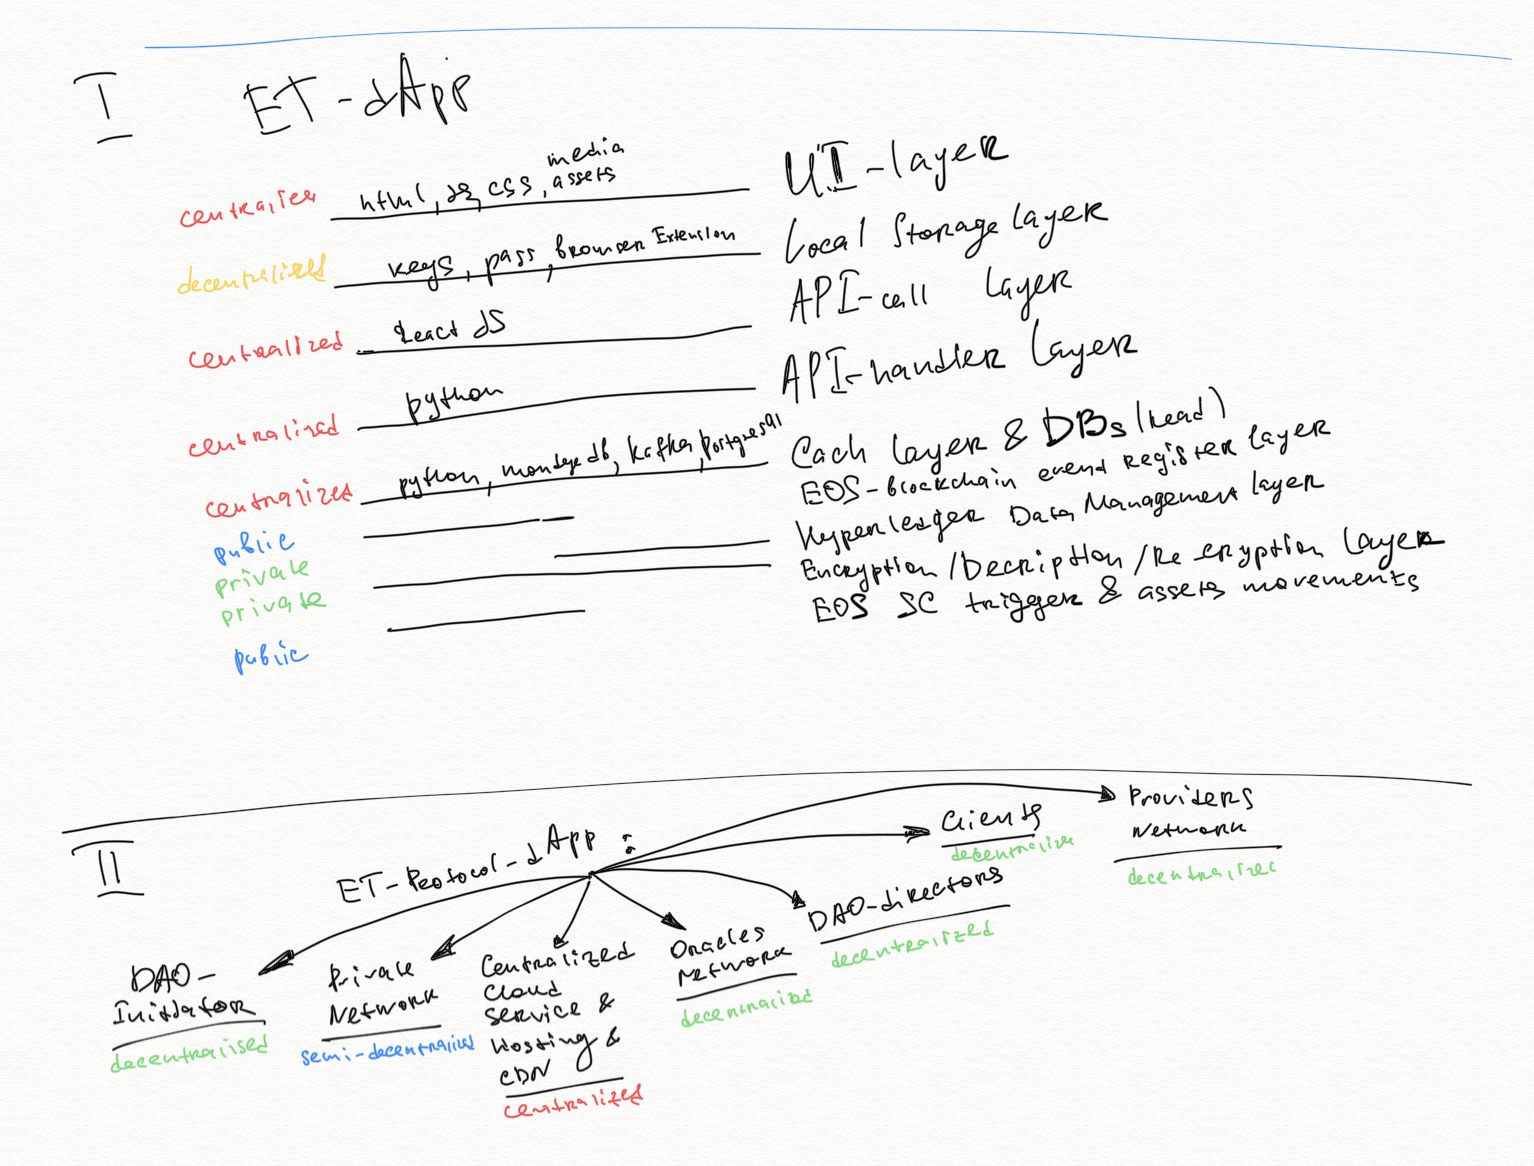 I ET-dApp
centralies html, JS, CSS, media assets UI-layer
decentralized keys, pass, browser Extension Local Storage Layer
centralized React JS API-call Layer
centralized python API-handler Layer
centralized python, mondgo db, kafka, postgresql Cach Layer & DBs (read)
public EOS-blockchain evend Register Layer
private Hyperledger Data Management Layer
private Encryption/Decription/Re eryption Layer
public EOS SC trigger & assets movements
II ET-Protocol-dApp:
DAO-
Initiator
decentralised
Private
Network
semi-decentralized
Centralized
Cloud
Service &
Hosting &
CDN
centralized
Oracles
Network
decentralized
DAO-directors
decentralized
Clients
decentralize
Providers
Network
decentralized